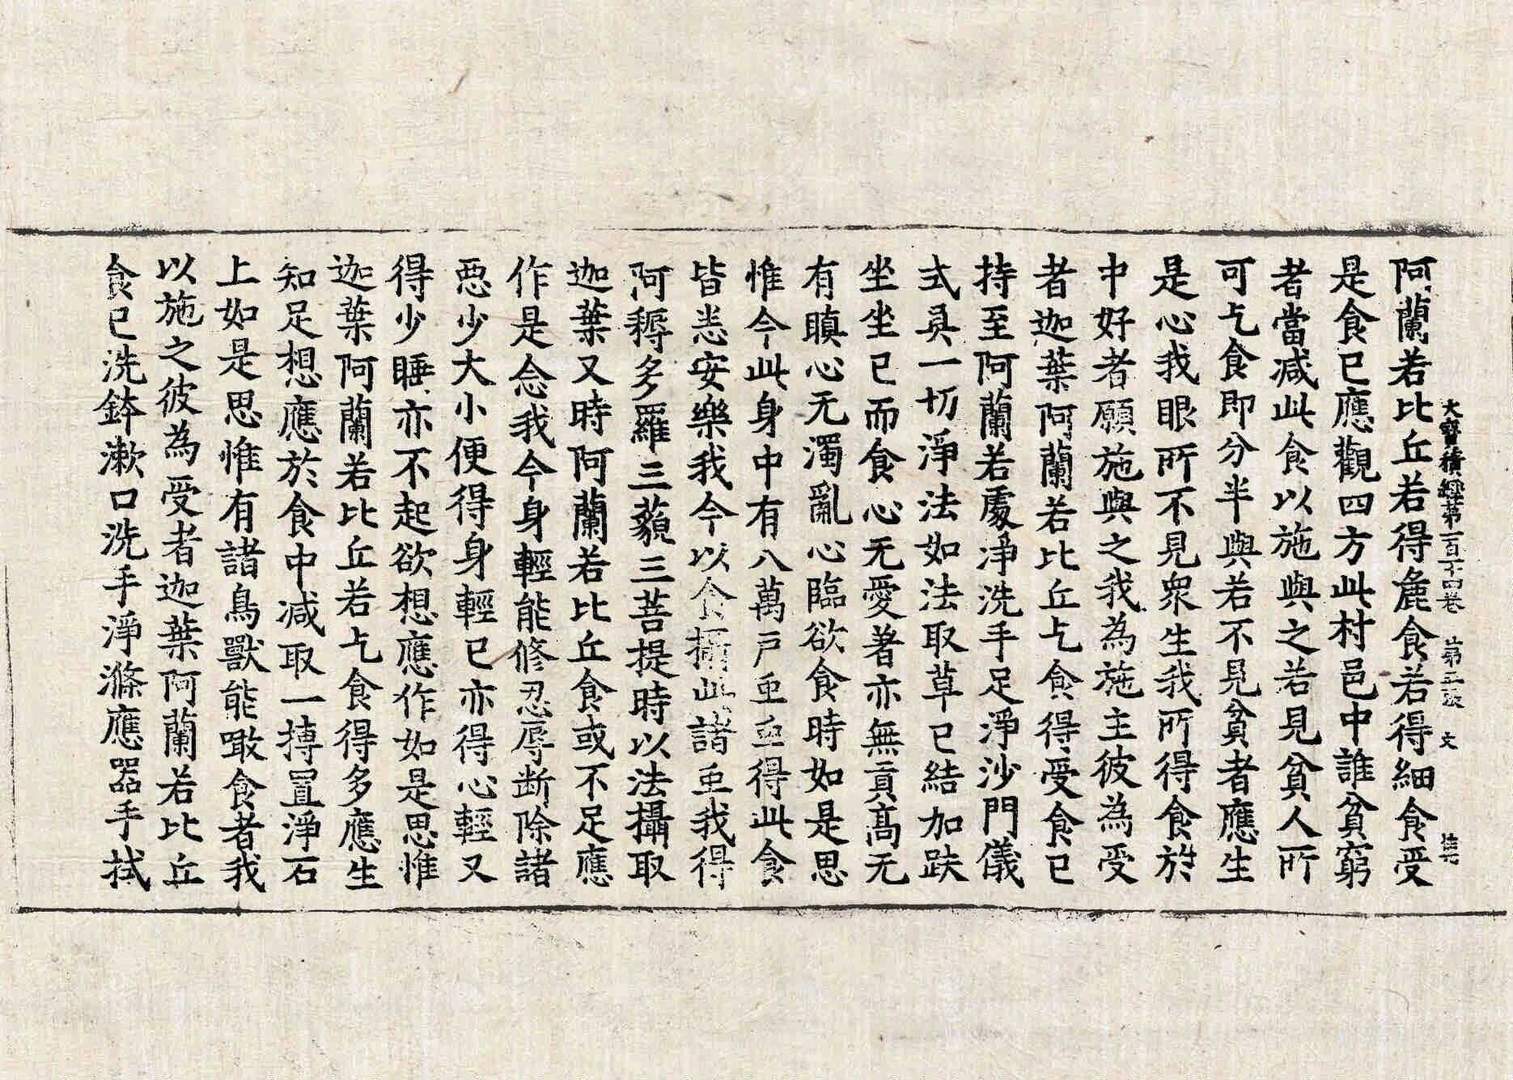 大寶積經第一百十四卷 第三張 文
阿蘭若比丘若得麁食若得細食受
是食已應觀四方此村邑中誰貧窮
者當减此食以施與之若見貧人所
可乞食即分半與若不見貧者應生
是心我眼所不見衆生我所得食於
中好者願施與之我為施主彼為受
者迦葉阿蘭若比丘乞食得受食已
持至阿蘭若處淨洗手足淨沙門儀
式具一切淨法如法取草已結加趺
坐坐已而食心无愛著亦無貢高无
有瞋心无濁亂心臨欲食時如是思
惟今此身中有八萬戶虫虫得此食
皆悉安樂我今以食攝此諸虫我得
阿耨多羅三藐三菩提時以法攝取
迦葉又時阿蘭若比丘食或不足應
作是念我今身輕能修忍辱断除諸
惡少大小便得身輕已亦得心輕又
得少睡亦不起欲想應作如是思惟
迦葉阿蘭若比丘若乞食得多應生
知足想應於食中减取一摶置淨石
上如是思惟有諸鳥獸能噉食者我
以施之彼為受者迦葉阿蘭若比丘
食已洗鉢漱口洗手淨滌應器手拭